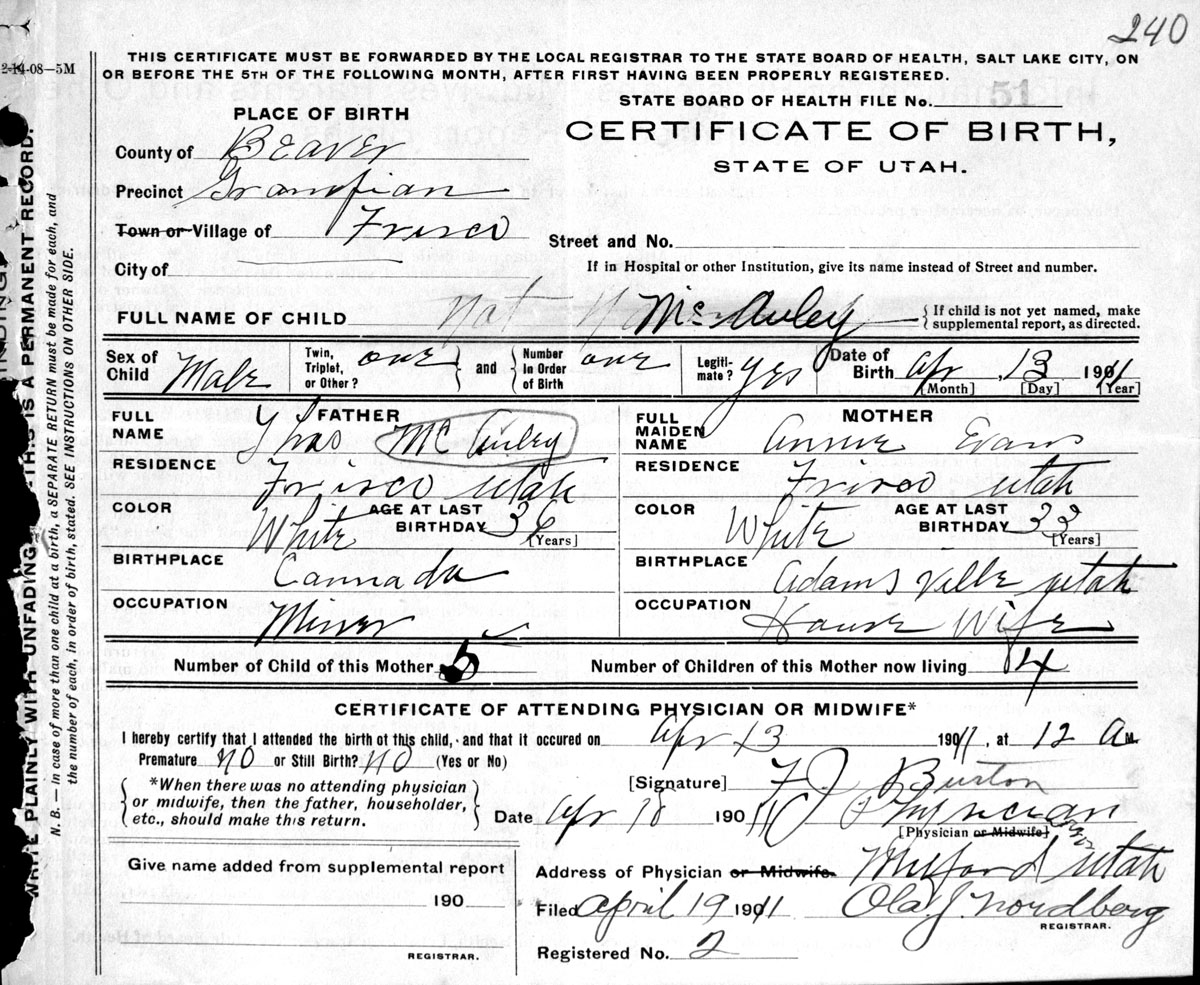 240
2-14-08—5M
THIS CERTIFICATE MUST BE FORWARDED BY THE LOCAL REGISTRAR TO THE STATE BOARD OF HEALTH, SALT LAKE CITY, ON
OR BEFORE THE 5TH OF THE FOLLOWING MONTH, AFTER FIRST HAVING BEEN PROPERLY REGISTERED.
STATE BOARD OF HEALTH FILE No. 51
PLACE OF BIRTH
CERTIFICATE OF BIRTH,
STATE OF UTAH.
County of Beaver
Precinct Grampian
Town or Village of Frisco
Street and No.
City of
If in Hospital or other Institution, give its name instead of Street and number.
FULL NAME OF CHILD Not McAuley
If child is not yet named, make
supplemental report, as directed.
Sex of Child Male
Twin, Triplet, or Other? one and Number In Order of Birth one
Legiti- mate? Yes
Date of Birth Apr 13 1911
[Month] [Day] [Year]
FATHER
FULL NAME Thos McAuley
RESIDENCE Frisco Utah
COLOR White AGE AT LAST BIRTHDAY 36 [Years]
BIRTHPLACE Cannada
OCCUPATION Miner
MOTHER
FULL MAIDEN NAME Annie Evans
RESIDENCE Frisco Utah
COLOR White AGE AT LAST BIRTHDAY 33 [Years]
BIRTHPLACE Adamsville Utah
OCCUPATION House Wife
Number of Child of this Mother 5 Number of Children of this Mother now living 4
CERTIFICATE OF ATTENDING PHYSICIAN OR MIDWIFE*
I hereby certify that I attended the birth of this child, and that it occured on Apr 13 1911, at 12 A M.
Premature NO or Still Birth? NO (Yes or No)
*When there was no attending physician
or midwife, then the father, householder,
etc., should make this return.
[Signature] F. J. Burton
Date Apr 18 1911 Physician
[Physician or Midwife]
Give name added from supplemental report
190
REGISTRAR.
Address of Physician or Midwife. Milford Utah
Filed April 19 1911 Ola J. Nordberg
REGISTRAR.
Registered No. 2
WRITE PLAINLY WITH UNFADING THIS IS A PERMANENT RECORD.
N. B.—In case of more than one child at a birth, a SEPARATE RETURN must be made for each, and
the number of each, in order of birth, stated. SEE INSTRUCTIONS ON OTHER SIDE.